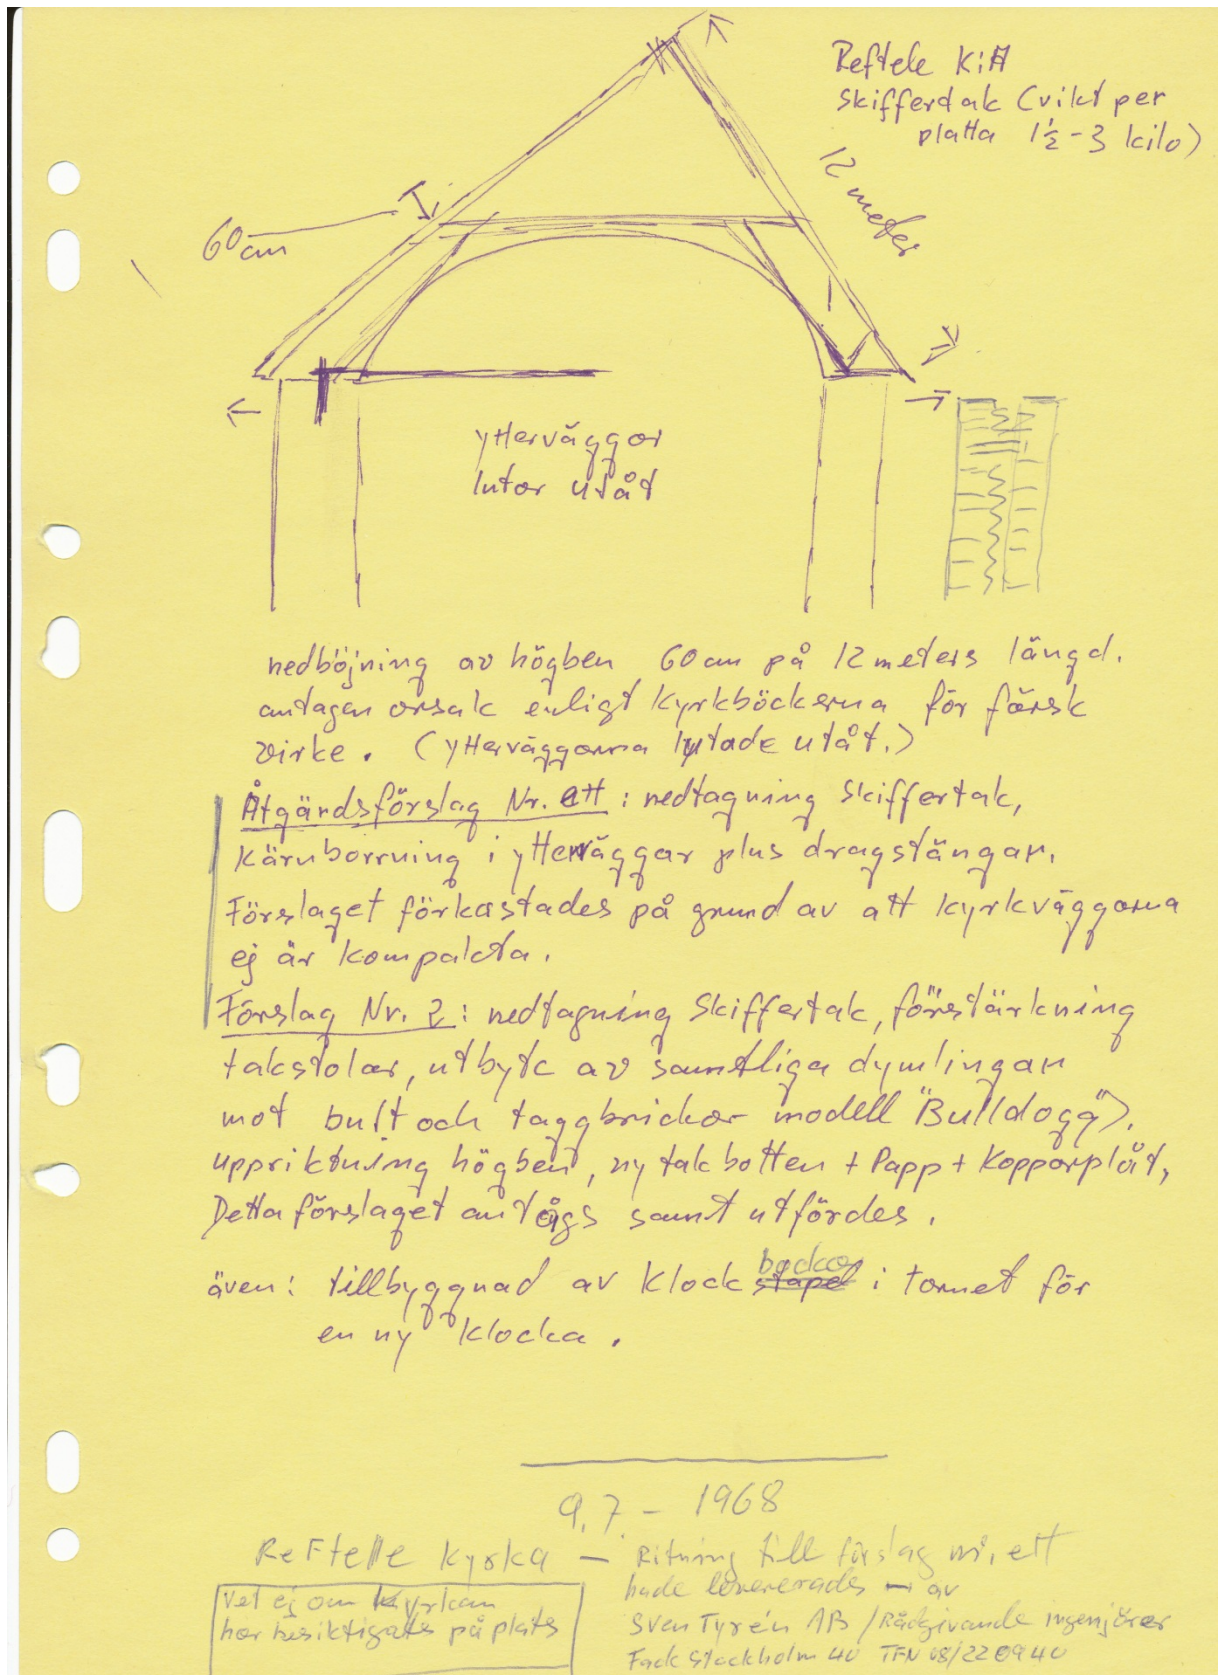 Reftele K:A
Skiffertak (vikt per
platta 1½-3 kilo)
12 meter
60 cm
ytterväggar
lutar utåt
nedböjning av högben 60 cm på 12 meters längd.
antagen orsak enligt kyrkböckerna för färsk
virke. (ytterväggarna lutade utåt.)
Åtgärdsförslag Nr. ett : nedtagning skiffertak,
kärnborrning i ytterväggar plus dragstänger.
Förslaget förkastades på grund av att kyrkväggarna
ej är kompakta.
Förslag Nr. 2 : nedtagning skiffertak, förstärkning
takstolar, utbyte av samtliga dymlingar
mot bult och taggbrickor modell "Bulldogg").
uppriktning högben, ny takbotten + Papp + Kopparplåt,
Detta förslaget antogs samt utfördes.
bockar
även: tillbyggnad av klock stapel i tornet för
en ny klocka.
9.7. - 1968
Reftelle Kyrka — Ritning till förslag nr. ett
hade levererades av
Sven Tyrén AB / Rådgivande ingenjörer
Fack Stockholm 40 TFN 08/22 09 40
Vet ej om kyrkan
har besiktigats på plats